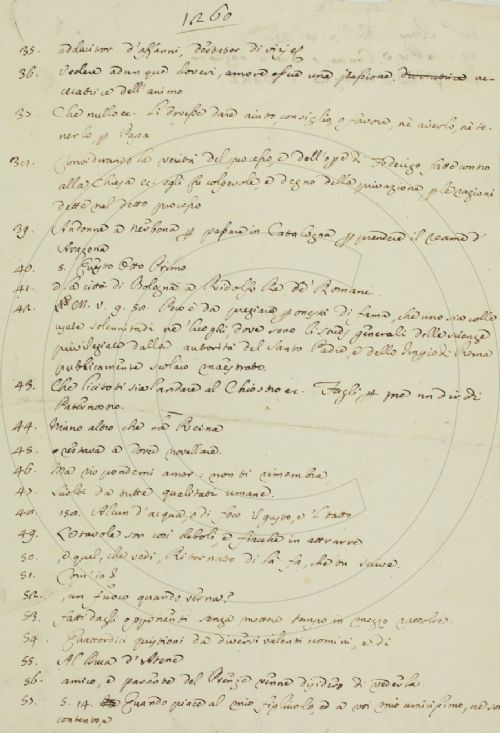 1260
35. adducitor d'affanni,
36. Vedere adunque dovevi, amore essere una passione, accecatrice dell'animo
37. Che nullo ec. li dovesse dare aiuto, consiglio, o favore, nè averlo, nè tenerlo p Papa
38. Considerando la verità del processo, e dell'opere di Federigo fatte contro
alla Chiesa ec. egli fu colpevole, e degno della privazione p le ragioni
dette nel detto processo
39. Andonne a Nerbona p passare in Catalogna p prendere il reame d'
Aragona
40. s. Questo Otto Primo
41. di a città di Bologna a Ridolfo Re de' Romani.
42. M. V. 9. 50. Poco è da pregiare p onore di fama, che uno sia colle
usate solennitadi ne' luoghi dove sono li studj generali delle scienze
privilegiate dalla autorità del Santo Padre, e dello Imperio di Roma
pubblicamente scolaio maestrato.
43. Che licito ti sia l'andare al Chiostro ec. Fagli p me un dir di
Paternostro.
44. Niuno altro che la Reina
45. restava a dover novellare.
46. Ma tu prendemi amor: non ti rimembra,
47. da tutte qualitati umane.
48. 150. Alcun d'acqua, o di foco il gusto, e 'l tatto
49. Le tavole son così deboli, e fiacche in attrarre
50. , e quel, che vedi, Ritornato di là fa, che tu scrive.
51. Com'io?
52. , un fuoco quando verna?
53. fatti dagli opponenti senza mettere tempo in mezzo raccolse.
54. Quattordici quistioni da diversi valenti uomini, e di
55. Al Duca d'Atene
56. amico, e parente del Prenze venne disidero di vederla.
57. 5. 14. Quando piace al mio figliuolo, ed a voi mio amicissimo, ne son
contento, e